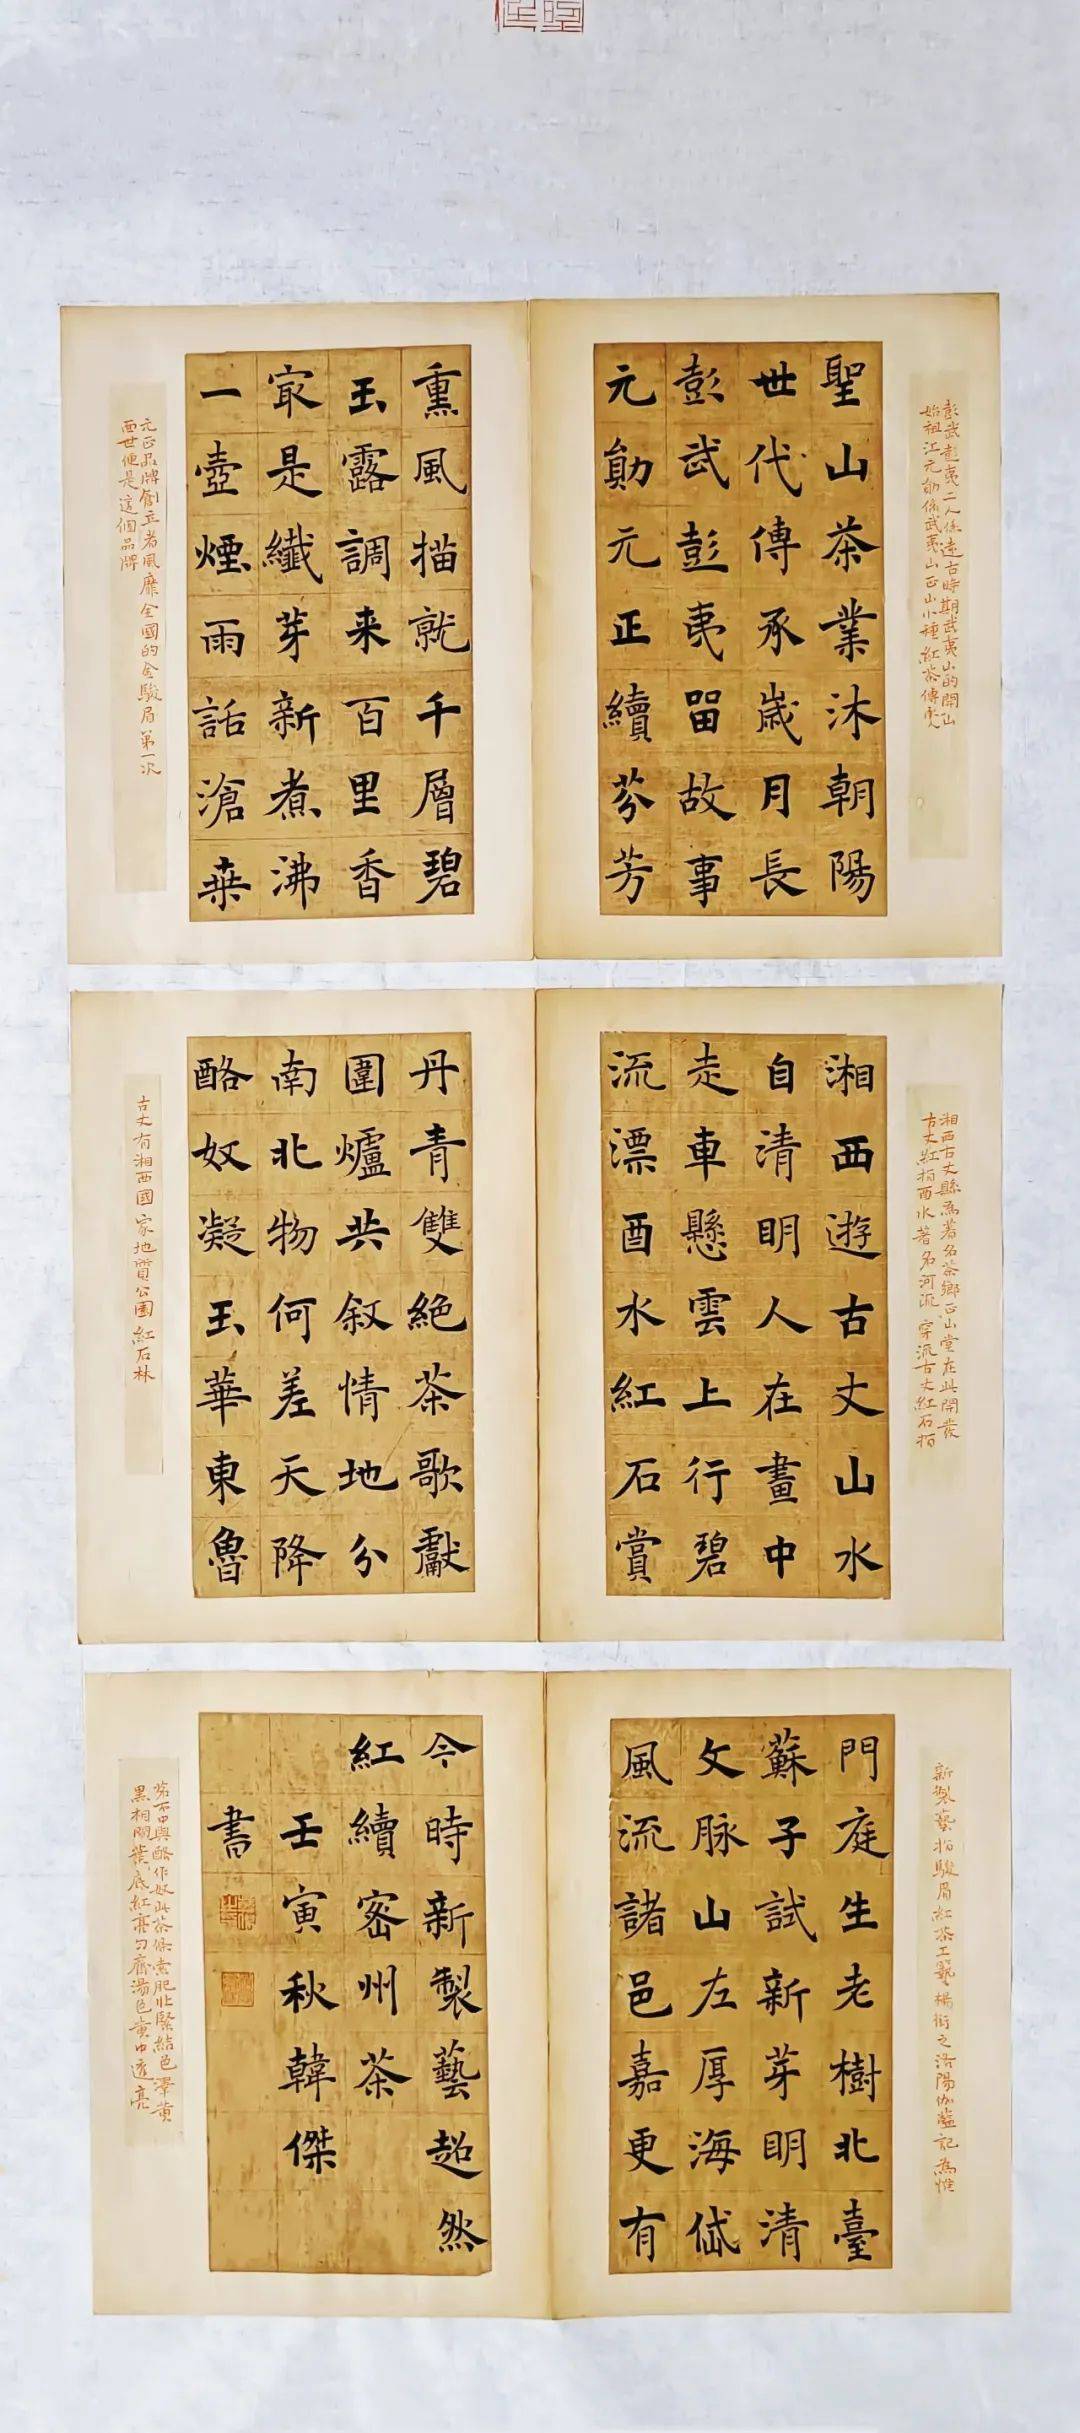 彭武彭夷二人係遠古時期武夷山的開山
始祖江元勛係武夷山正山小種紅茶傳承人
聖山茶業沐朝陽
世代傳承歲月長
彭武彭夷留故事
元勛元正續芬芳
熏風描就千層碧
玉露調来百里香
冣是纖芽新煮沸
一壺煙雨話滄桒
元正品牌創立者風靡全國的金駿眉第一次
面世便是這個品牌
湘西古丈縣為著名茶鄉正山堂在此開發
古丈紅指酉水著名河流穿流古丈紅石指
湘西遊古丈山水
自清明人在畫中
走車懸雲上行碧
流漂酉水紅石賞
丹青雙絶茶歌獻
圍爐共叙情地分
南北物何差天降
酪奴凝玉華東魯
古丈有湘西國家地質公園紅石林
新製藝指駿眉紅茶工藝楊衒之洛陽伽藍記為惟
門庭生老樹北臺
蘇子試新芽明清
文脉山左厚海岱
風流諸邑嘉更有
今時新製藝超然
紅續密州茶
壬寅秋韓傑
書
茗不中與酪作奴此茶條索肥壯緊結色澤黄
黑相間葉底紅亮勻齊湯色黄中透亮